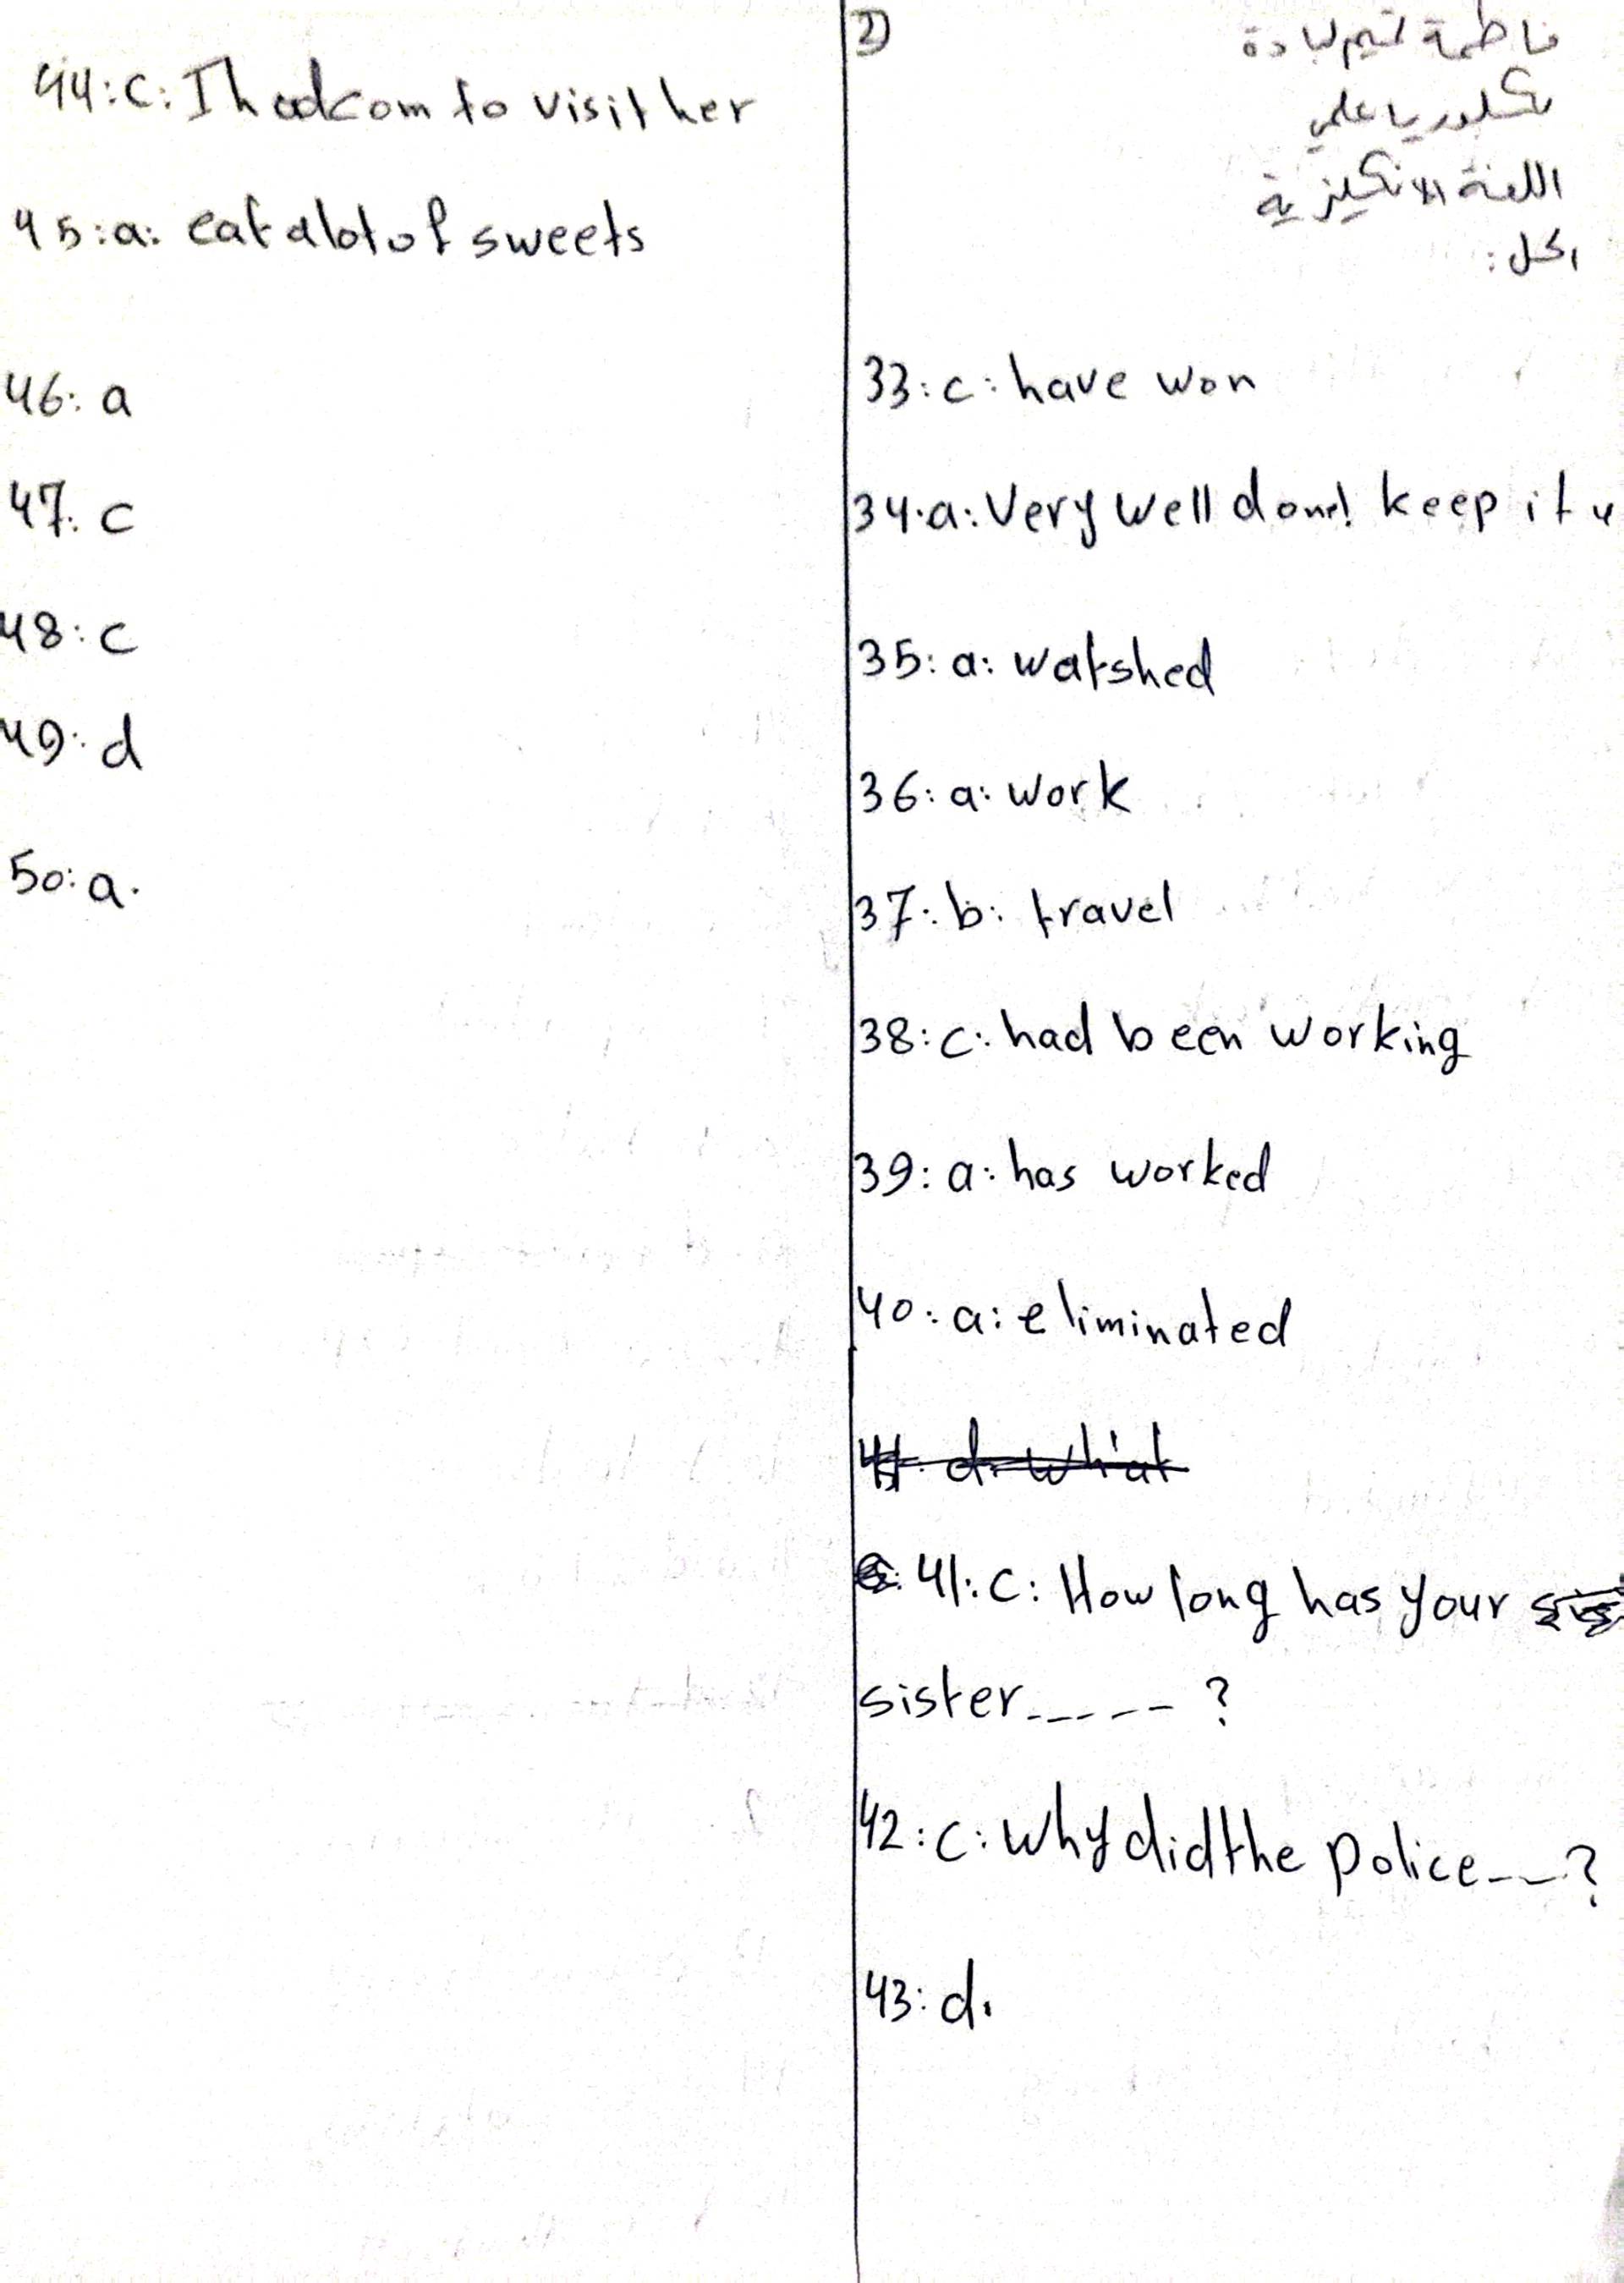 2)
فاطمة تسنيم لبادة
بكلوريا علمي
اللغة الانكليزية
الحل:
33: c: have won
34. a: Very well done! keep it u
35: a: watshed
36: a: work
37: b: travel
38: c: had been working
39: a: has worked
40: a: eliminated
41: d: what
41: c: How long has your
sister-----?
42: c: why did the police---?
43: d.
44: c: I had com to visit her
45: a: eat a lot of sweets
46: a
47: c
48: c
49: d
50: a.